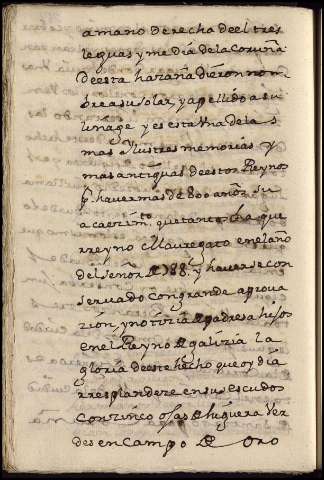 a mano derecha de el tres
leguas y media de la Coruña
de esta hazaña dieron nom
bre a su solar, y apellido a su
linage y es esta Una de las
mas Ylustres memorias y
mas antiguas de estos Reynos
p. haver mas de 800 años su
acaezim.to que tanto ha que
rreyno Mauregato en el año
del Señor de 788 y haverse con
servado con grande aprova
zion, y notizia de padres a hijos
en el Reyno de galizia la
gloria de este hecho que oy dia
rresplandeze en sus escudos
con zinco ojas de higuera Ver
des en Campo de Oro